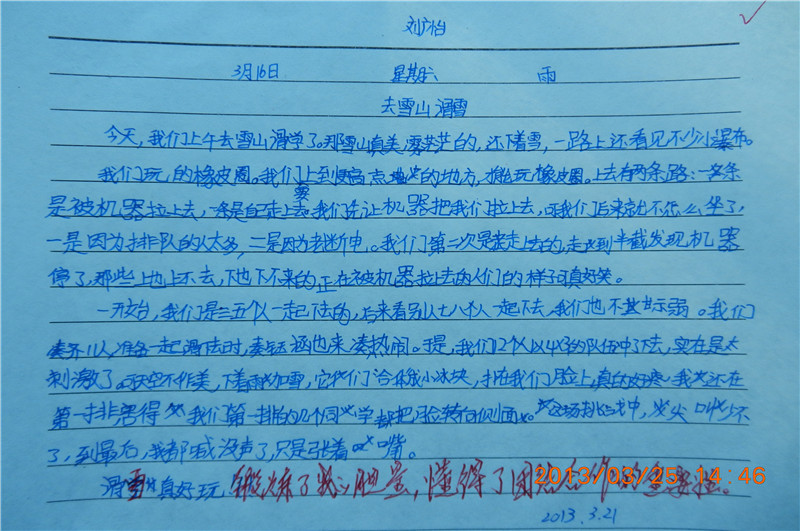 刘广怡
3月16日 星期六 雨
去雪山滑雪
今天,我们上午去雪山滑学了。那雪山真美,雾茫茫的,还下着雪,一路上还看见不少小瀑布。
我们玩的橡皮圈。我们要上到更高点的地方,才能玩橡皮圈。上去有两条路:一条
是被机器拉上去,一条是自己走上去。我们先让机器把我们拉上去,可我们后来就不怎么坐了,
一是因为排队的人太多,二是因为老断电。我们第二次是走上去的,走到半截发现机器
停了,那些上也上不去,下也下不来的正在被机器拉上去的人们的样子可真好笑。
一开始,我们是三五个人一起下去的,后来看别人七八个人一起下去,我们也不甘示弱。我们
凑齐11人,准备一起滑下去时,秦钰涵也来凑热闹。于是,我们12个人以4×3的队伍冲了下去,实在是太
刺激了。天空不作美,下着雨加雪,它们合体成小冰块,打在我们脸上真的好疼。我还在
第一排,害得我们第一排的几个同学都把脸转向侧面。在这场挑战中,尖叫少不
了,到最后,我都喊没声了,只是张着嘴。
滑雪真好玩,锻炼了我们胆量,懂得了团结合作的重要性。
2013/03/25 14:46
2013.3.21